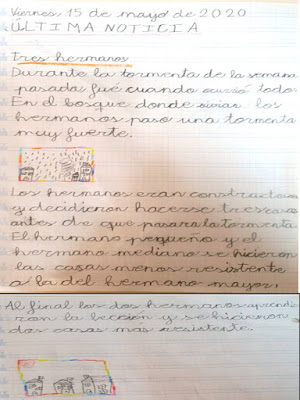 Viernes, 15 de mayo de 2020
ÚLTIMA NOTICIA
Tres hermanos
Durante la tormenta de la semana
pasada fue cuando ocurrió todo.
En el bosque donde vivías los
hermanos paso una tormenta
muy fuerte.
Los hermanos eran constructores
y decidieron hacerse tres casas
antes de que pasara la tormenta.
El hermano pequeño y el
hermano mediano se hicieron
las casas menos resistente
a la del hermano mayor.
Al final los dos hermanos aprendie
ron la lección y se hicieron
dos casas más resistente.